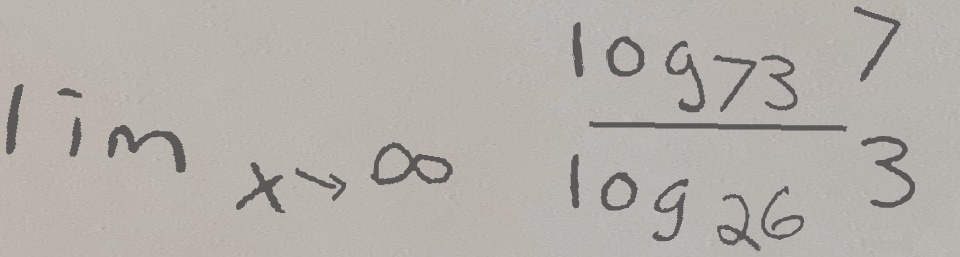 lim x→∞ log73 7
log26 3